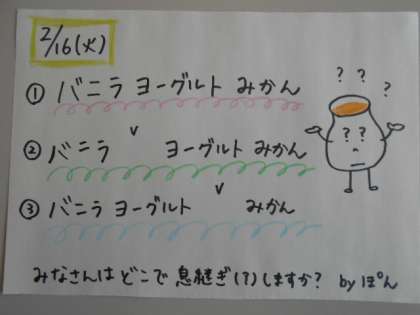 2/16(火)
? ? ?
① バニラ ヨーグルト みかん
? ?
v
② バニラ ヨーグルト みかん
v
③ バニラ ヨーグルト みかん
みなさんは どこで 息継ぎ(?)しますか? by ぽん